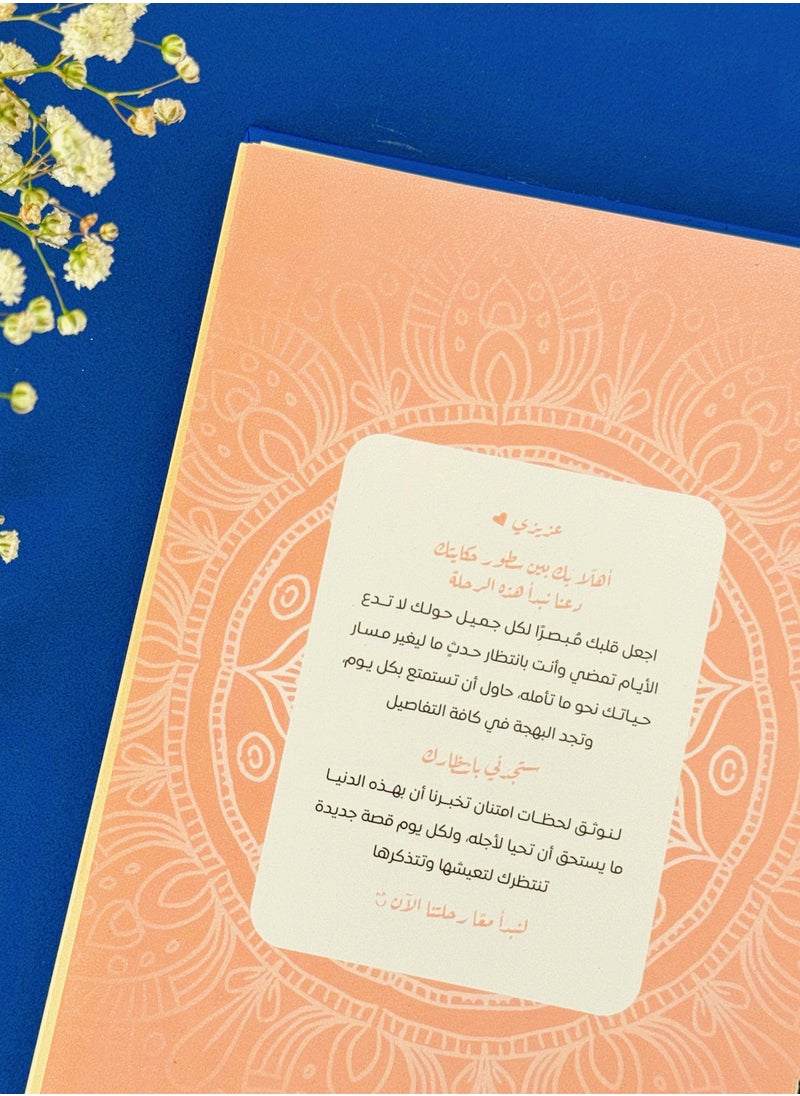 عزيزي ♥
أهلًا بك بين سطور حكايتك
دعنا نبدأ هذه الرحلة
اجعل قلبك مُبصرًا لكل جميل حولك لا تدع
الأيام تمضي وأنت بانتظار حدثٍ ما ليغير مسار
حياتك نحو ما تأمله، حاول أن تستمتع بكل يوم،
وتجد البهجة في كافة التفاصيل
ستجدني بانتظارك
لنوثق لحظات امتنان تخبرنا أن بهذه الدنيا
ما يستحق أن تحيا لأجله، ولكل يوم قصة جديدة
تنتظرك لتعيشها وتتذكرها
لنبدأ معًا رحلتنا الآن